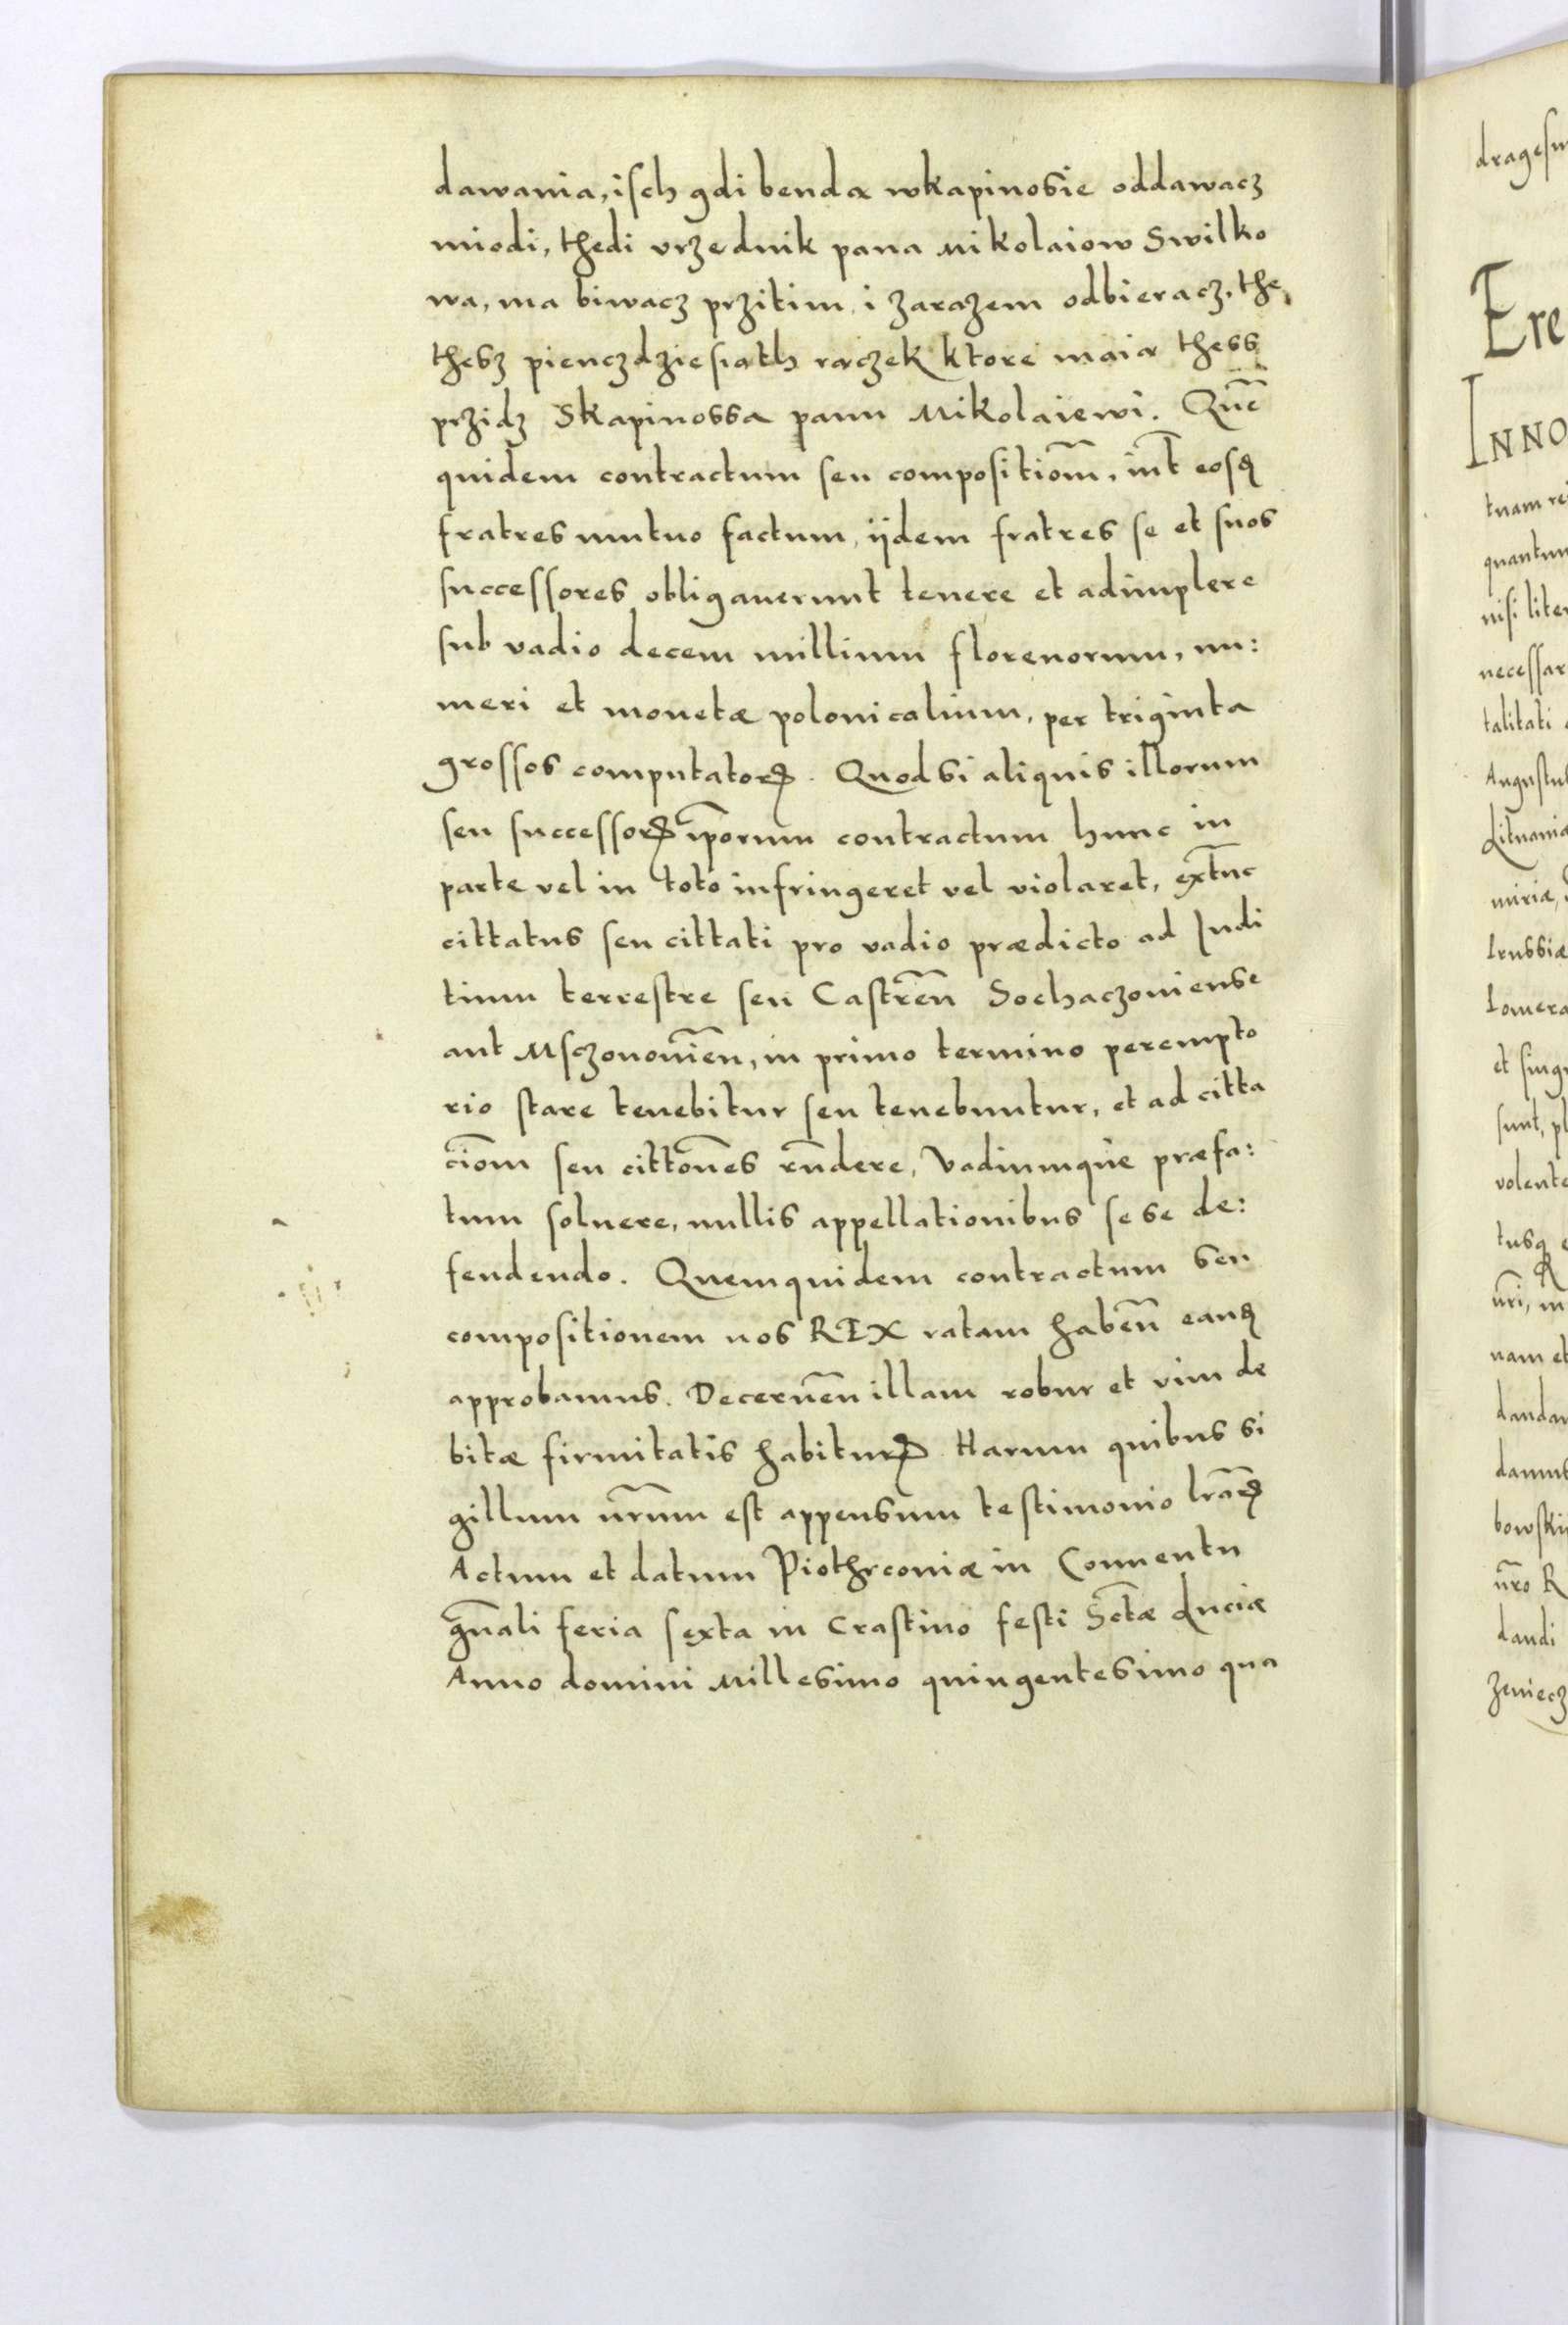 dawania, isch gdi benda wkapinosie oddawacz
miodi, thedi vrzednik pana Mikolaiow Swilko
wa, ma biwacz przitim i zarazem odbieracz, the
thesz pienczdziesiath raczek ktore maia thess
przidz Skapinossa panu Mikolaiewi. Quē
quidem contractum seu compositiōm, int̄ eosꝗ
fratres mutuo factum, ijdem fratres se et suos
successores obligauerunt tenere et adimplere
sub vadio decem millium florenorum, nu:
meri et monetæ polonicalium, per triginta
grossos computatoꝝ. Quod si aliquis illorum
seu successoꝝ ip̄orum contractum hunc in
parte vel in toto infringeret vel violaret, ext̄uc
cittatus seu cittati pro vadio prædicto ad Judi
tium terrestre seu Castreñ Sochaczouiense
aut Msczonouieñ, in primo termino perempto
rio stare tenebitur seu tenebuntur, et ad citta
ciōm seu cittōnes rñdere, Vadiumque præfa:
tum soluere, nullis appellationibus se se de:
fendendo. Quemquidem contractum seu
compositionem nos REX ratam habeñ eanꝗ
approbamus. Decerneñ illam robur et vim de
bitæ firmitatis habituꝝ Harum quibus si
gillum nr̄um est appensum testimonio lr̄aꝝ
Actum et datum Piothrconiæ in Conuentu
gn̄ali feria sexta in Crastino festi Sctæ Luciæ
Anno domini Millesimo quingentesimo qua
dragesi
Ere
INNO
tuam re
quantum
nisi liter
necessar
talitati
Augustu
Lituaniæ
miriæ,
et sing
sunt, pl
volente
tusꝗ
nr̄i, in
nam et
dandam
damus
bowskii
nr̄o R
dandi
zeniecz